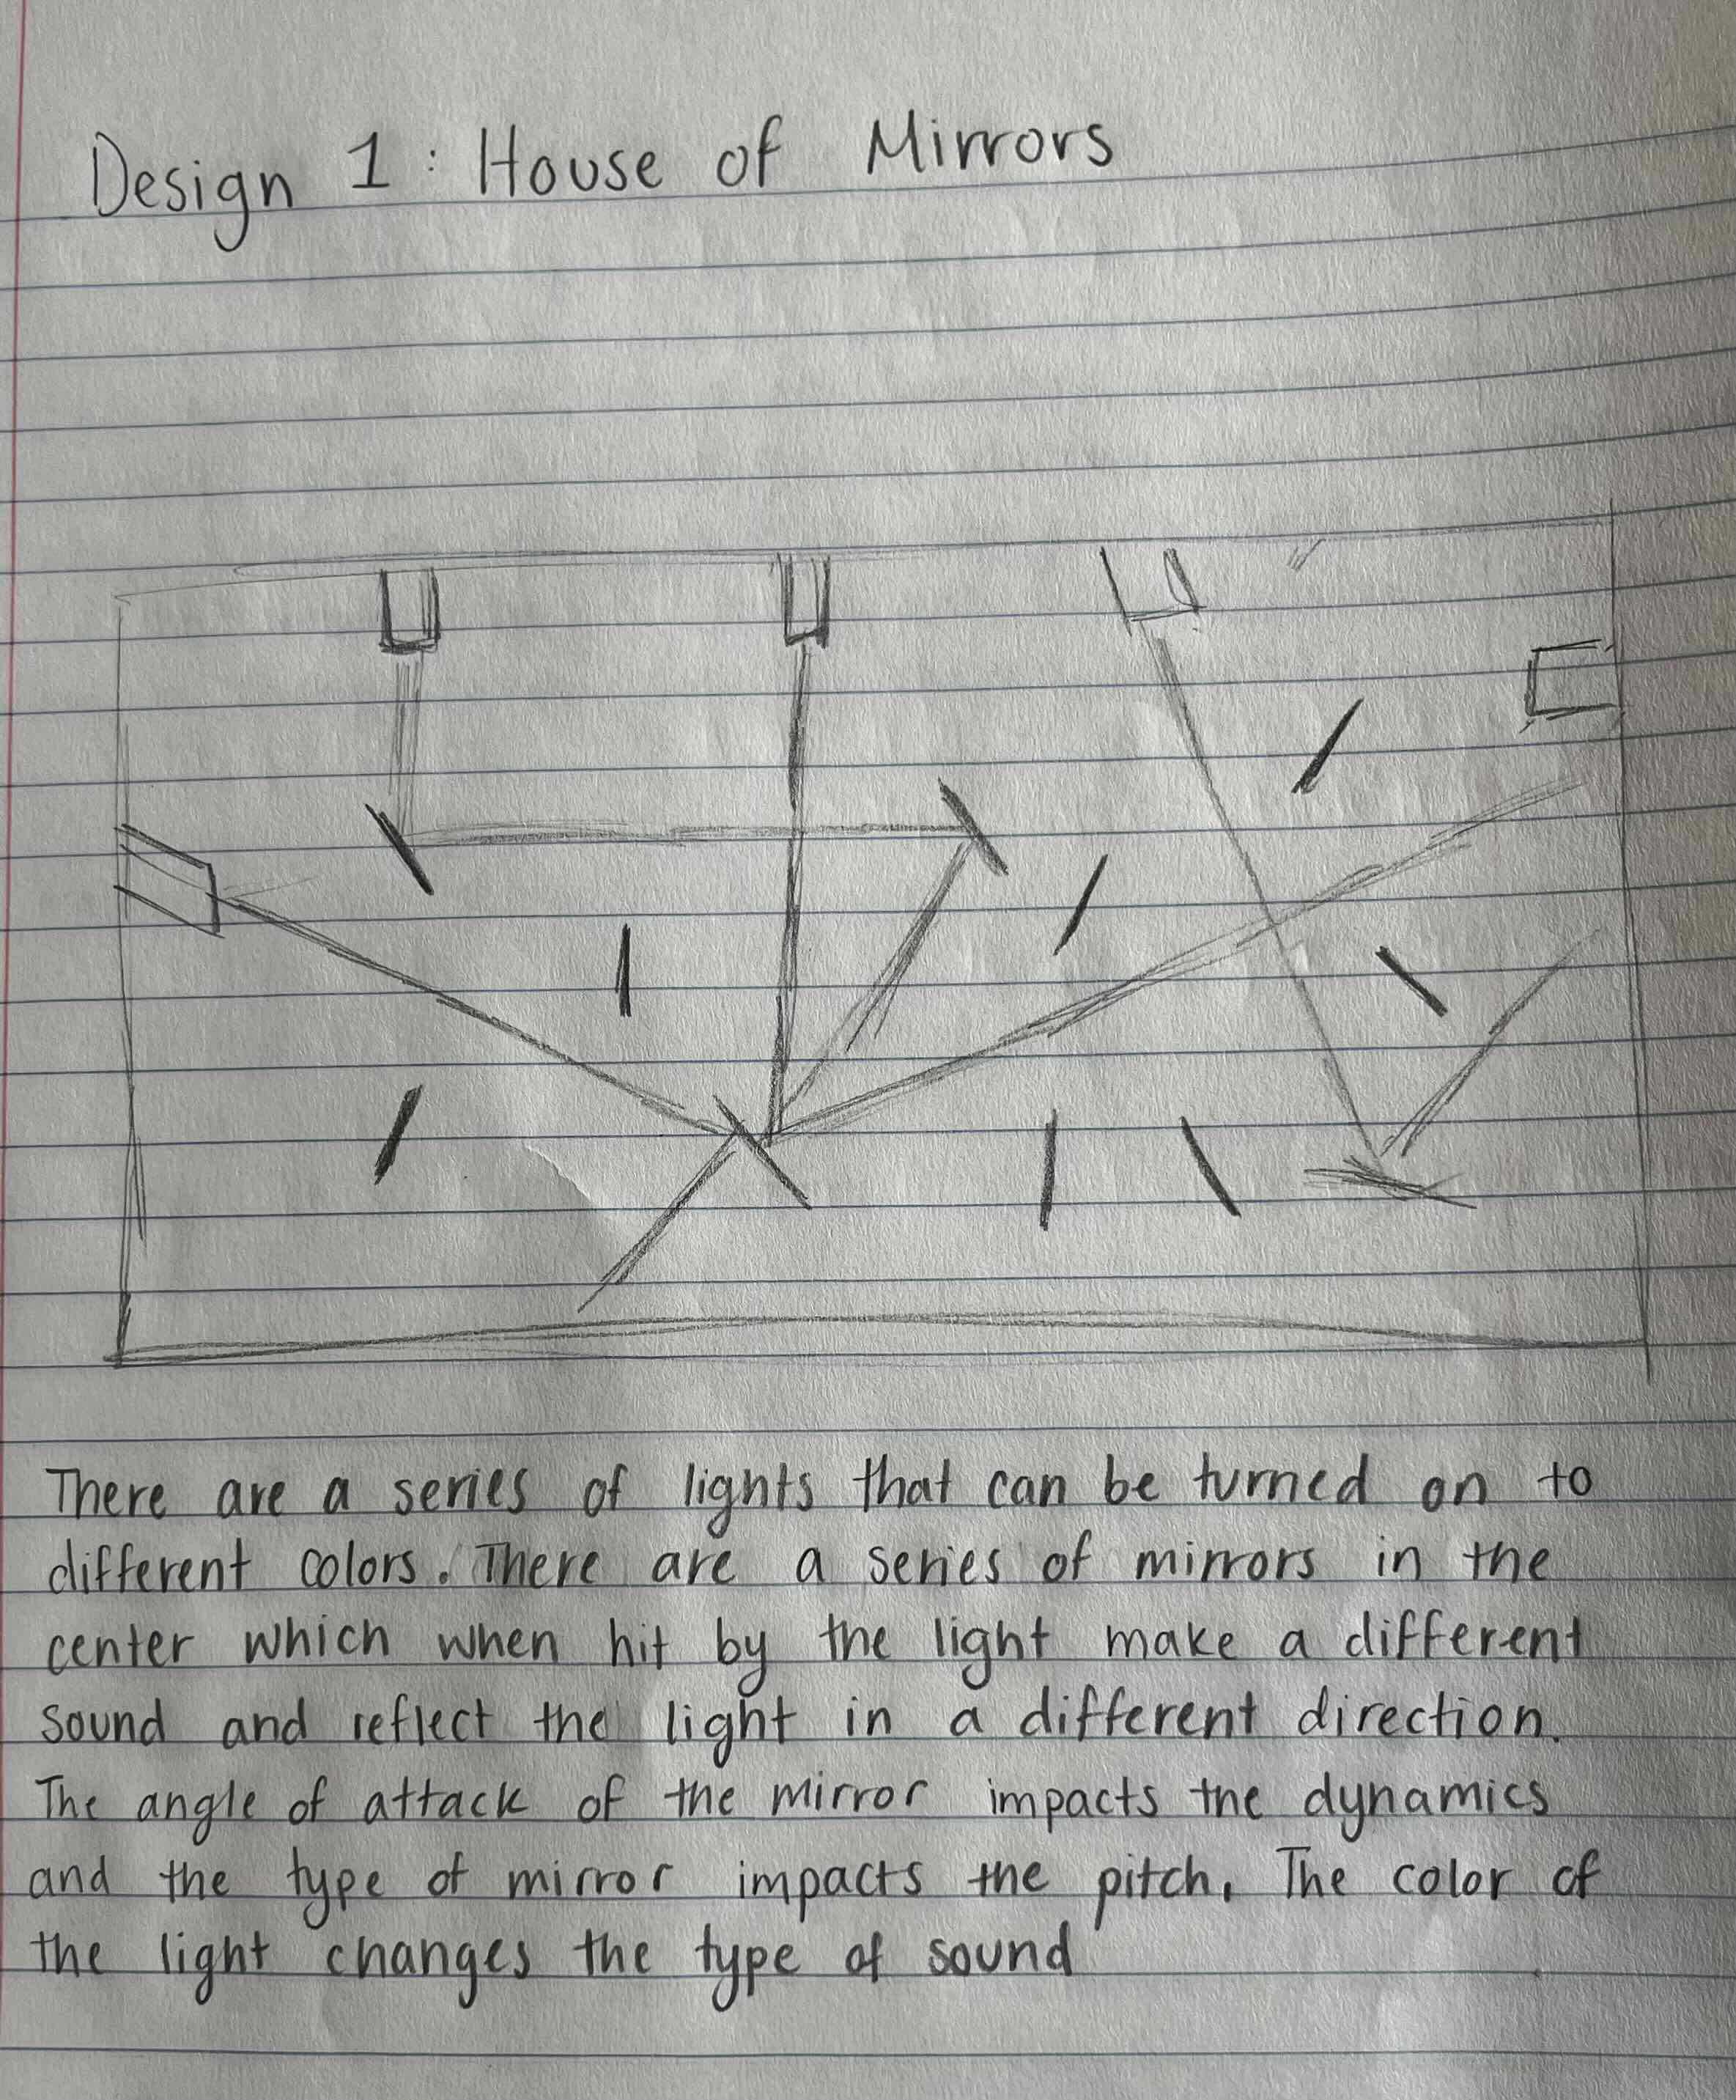 Design 1: House of Mirrors
There are a series of lights that can be turned on to
different colors. There are a series of mirrors in the
center which when hit by the light make a different
sound and reflect the light in a different direction.
The angle of attack of the mirror impacts the dynamics
and the type of mirror impacts the pitch. The color of
the light changes the type of sound